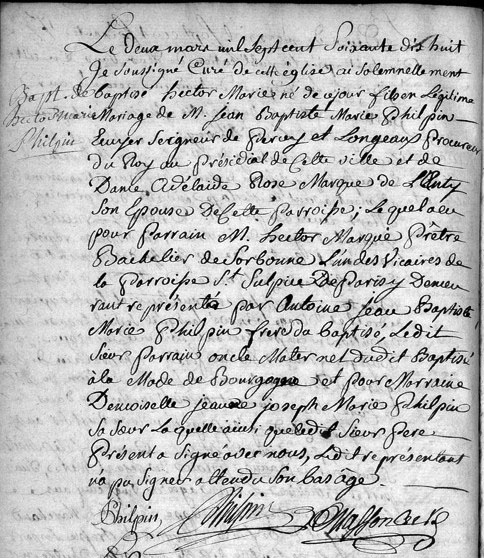 Le deux mars mil sept cent Soixante dix huit
Je soussigné Curé de cette église ai solemnellement
Bapt. de
hector marie
Philpin
baptisé hector Marie né de ce jour fils en Légitime
Mariage de M. Jean Baptiste Marie Philpin
Ecuyer Seigneur de Percey et Longeaux Procureur
du Roy au Présidial de Cette ville et de
Dame Adélaide Rose Marque de
Son Epouse De Cette Parroisse; Le quel a eu
pour Parrain M. hector Marque Prêtre
Bachelier de Sorbonne L'un des Vicaires de
la Parroisse St. Sulpice De Paris y Demeu
rant représenté par Antoine Jean Baptiste
Marie Philpin frere du baptisé, Ledit
Sieur Parrain oncle Maternel dudit Baptisé
à la Mode de Bourgogne et pour Marraine
Demoiselle jeanne joseph Marie Philpin
Sa Soeur La quelle ainsi que ledit Sieur Pere
Présent a Signé avec nous, Ledit représentant
n'a pu Signer attendu Son bas âge.
Philpin, Philpin